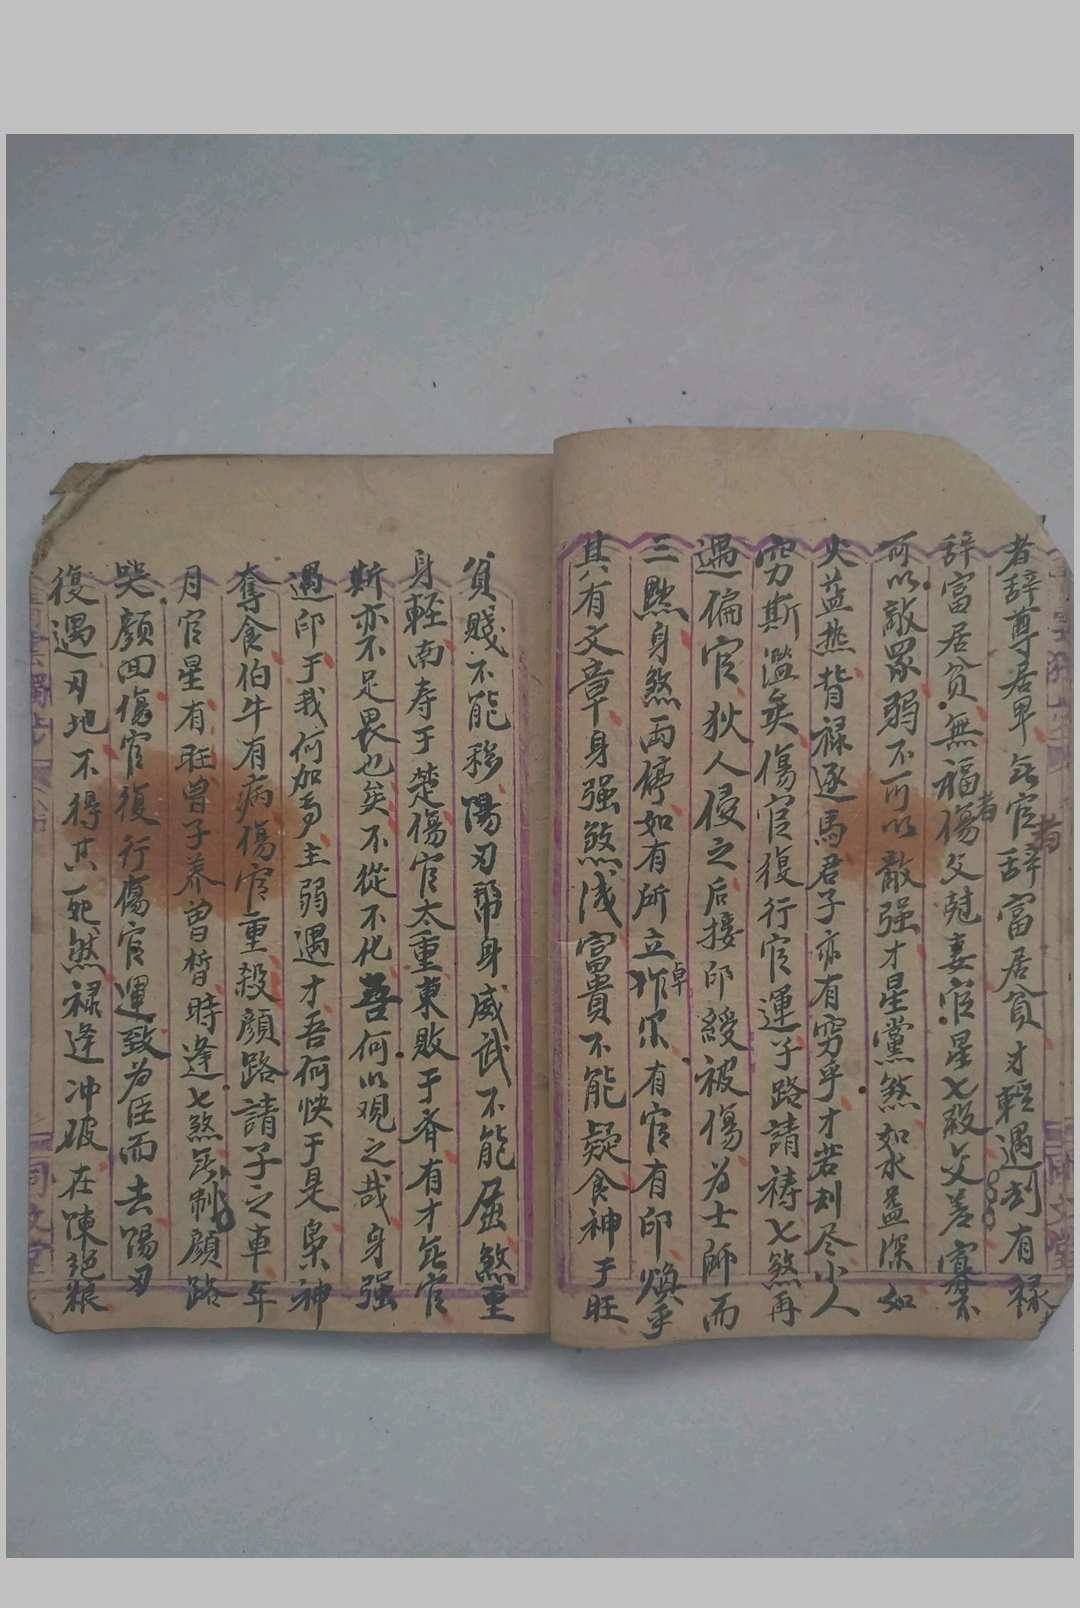 者辞尊居卑無官者辞富居貧才輕遇刦有禄
辞富居貧無福者傷父尅妻官星七殺交差寡不
可以敵眾弱不可以敵强才星黨煞如水益深如
火益热背禄逐馬君子亦有穷乎才若刦尽小人
穷斯濫矣傷官復行官運子路請祷七煞再
遇偏官狄人侵之后接印綬被傷为士師而
三黜身煞兩停如有所立卓尔有官有印煥乎
其有文章身强煞浅富貴不能疑食神于旺
貧賤不能移陽刃帮身威武不能屈煞重
身輕南寿于楚傷官太重東敗于齐有才無官
斯亦不足畏也矣不從不化吾何以观之哉身强
遇印于我何加焉主弱遇才吾何快于是枭神
奪食伯牛有病傷官重殺顏路請子之車年
月官星有旺曾子养曾晳時逢七煞無制顏路
哭顏回傷官復行傷官運致为臣而去陽刃
復遇刃地不得其死然禄逢冲破在陳絕粮
同文堂